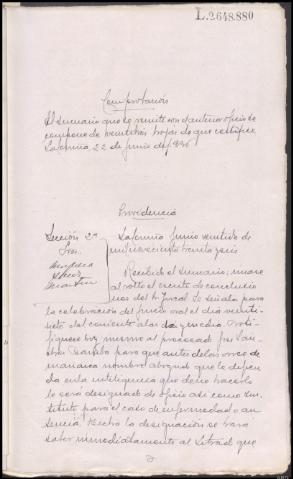 L.2648.880
Comprobación
El sumario que se remite con el anterior oficio se
compone de veintidós hojas de que certifico
La Coruña, 22 de Junio de 1936
Providencia
Sección 2ª
Sres.
La Coruña Junio veintidos de
mil novecientos treinta y seis
Recibido el sumario; únase
al rollo el escrito de conclusio
nes del M. Fiscal. Se señala para
la celebración del juicio oral el día veinti-
siete del corriente a las diez y media. Noti-
fíquese hoy mismo al procesado
para que antes de las once de
mañana nombre abogado que le defien
da en la inteligencia que de no hacerlo
le será designado de oficio así como sus-
tituto para el caso de enfermedad o au
sencia. Hecha la designación se hará
saber inmediatamente al Letrado que